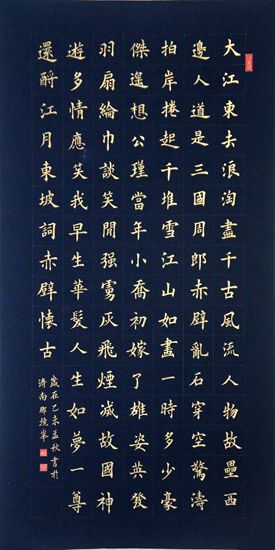 大江東去浪淘盡千古風流人物故壘西
邊人道是三國周郎赤壁亂石穿空驚濤
拍岸捲起千堆雪江山如畫一時多少豪
傑遙想公瑾當年小喬初嫁了雄姿英發
羽扇綸巾談笑間强虜灰飛煙滅故國神
遊多情應笑我早生華髮人生如夢一尊
還酹江月東坡詞赤壁懷古
歲在乙未孟秋書於
濟南